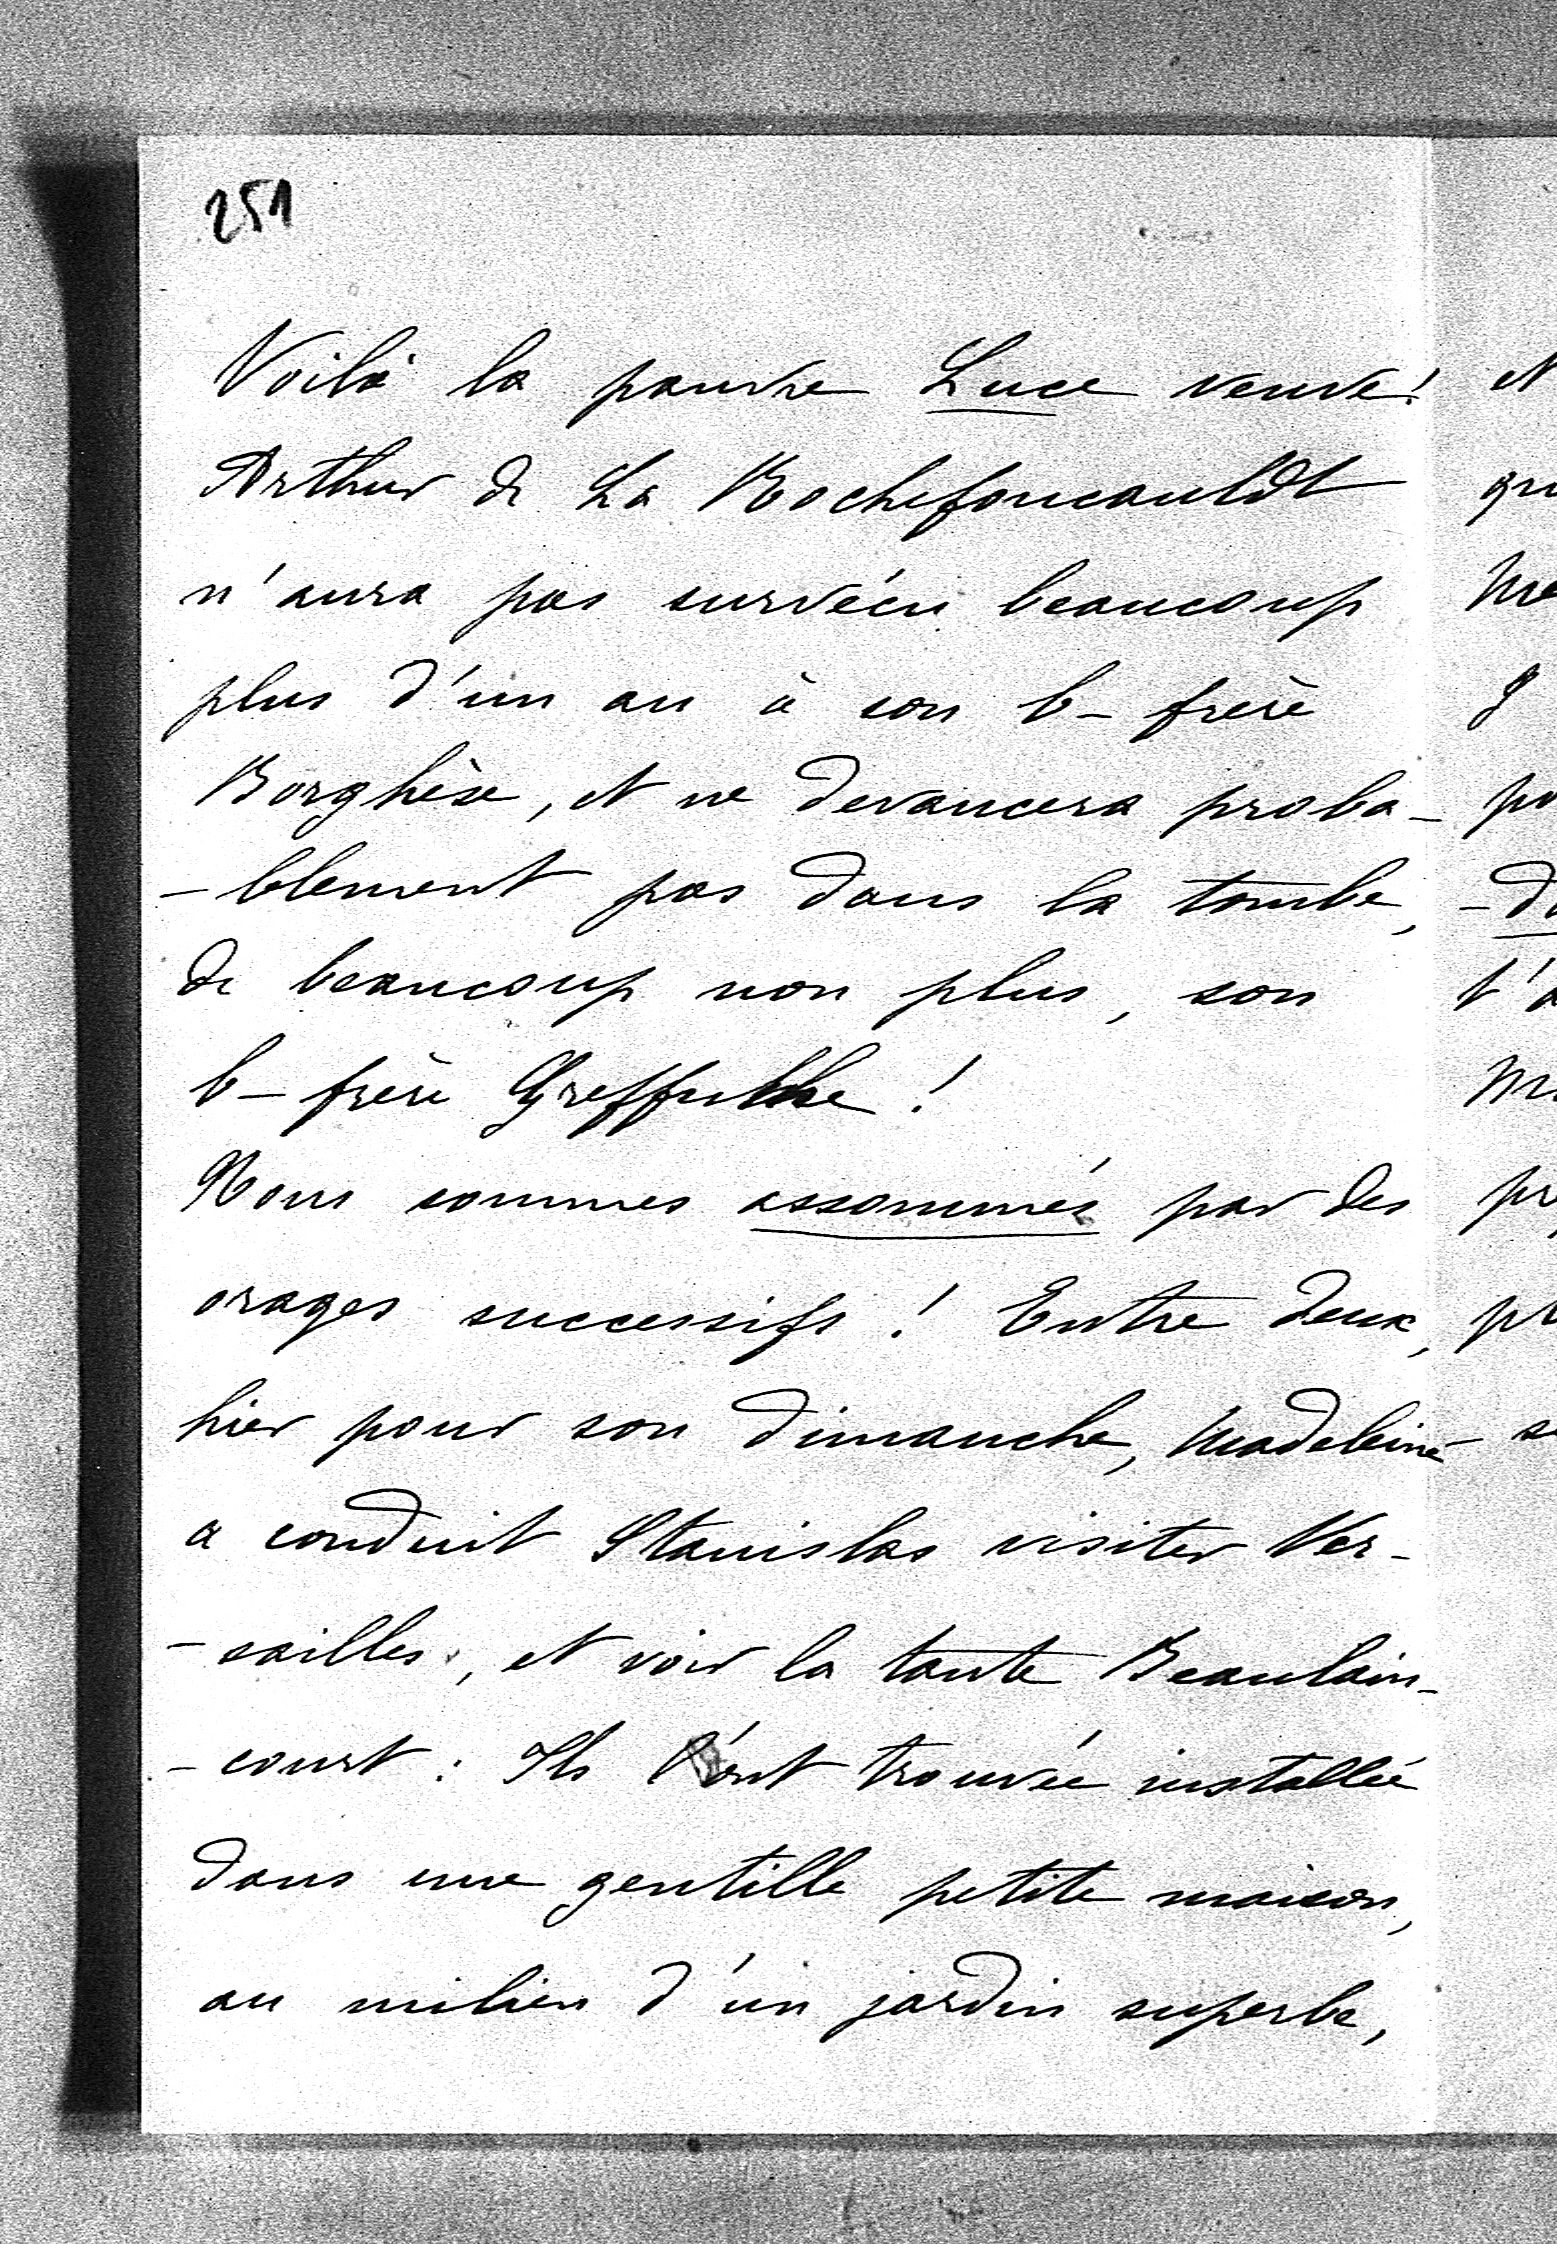 251
Voilà la pauvre Luce veuve !
Arthur de La Rochefoucauldt
n'aura pas survécu beaucoup
plus d'un an à son b- frère
Borghèse, et ne devancera proba-
-blement pas dans la tombe,
de beaucoup non plus, son
b- frère Greffulhe !
Nous sommes assommés par des
orages successifs ! Entre deux,
hier pour son dimanche, Madeleine
a conduit Stanislas visiter Ver-
-sailles, et voir la tante Beaulain-
-court : Ils l'ont trouvée installée
dans une gentille petite maison,
au milieu d'un jardin superbe,